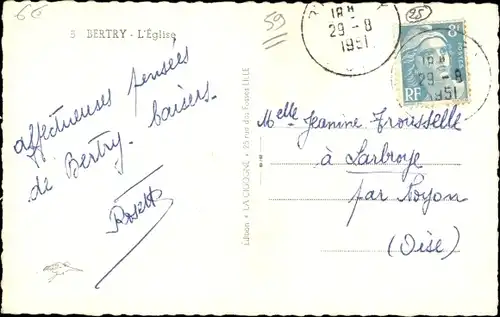 66
59
25
5 BERTRY - L'Église
18 H
29 - 8
1951
8F
POSTES
RF
18 H
29 - 8
1951
affectueuses pensées
de Bertry. baisers.
Rosette
Edition • LA CIGOGNE • 25 rue des Fossés LILLE
Melle Jeanine Trousselle
à Larbroye
par Noyon
(Oise)